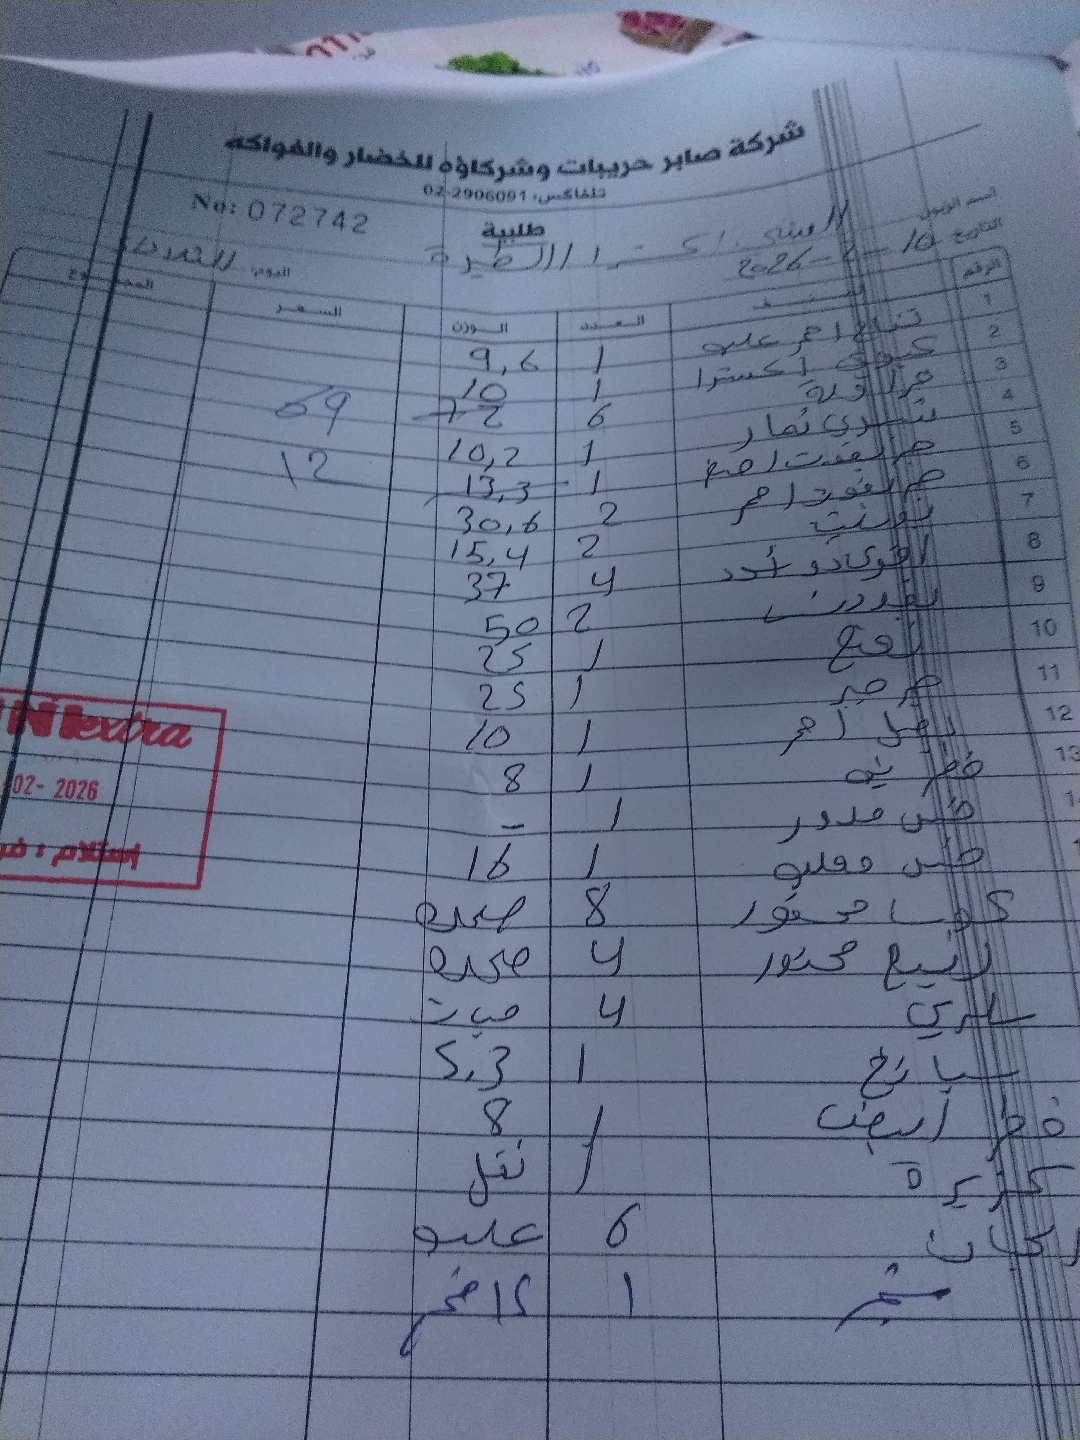 شركة صابر حريبات وشركاؤه للخضار والفواكه
تلفاكس: 02-2906091
No: 072742
طلبية
اسم الزبون
اكسترا / الطيرة
التاريخ 2026-2-10 اليوم: الثلاثاء
الرقم الصنف العدد الوزن السعر المجموع
1 تفاح احمر 1 9,6
2 اكسترا 1 10
3 فراولة 6 72 69
4 شري تمار 1 10,2
5 اصفر 1 13,3 12
6 احمر 2 30,6
7 2 15,4
8 افوكادو 4 37
9 بقدونس 2 50
10 نعنع 1 25
11 جرجير 1 25
12 بصل احمر 1 10
13 فطر بني 1 8
خس مدور 1 -
خس 1 16
كوسا محفور 8 صحن
محفور 4 صحن
سلري 4 حبات
سبانخ 1 5,3
فطر ابيض 1 8
كزبرة 1
ريحان 6 علبه
1
INI extra
02- 2026
إستلام :